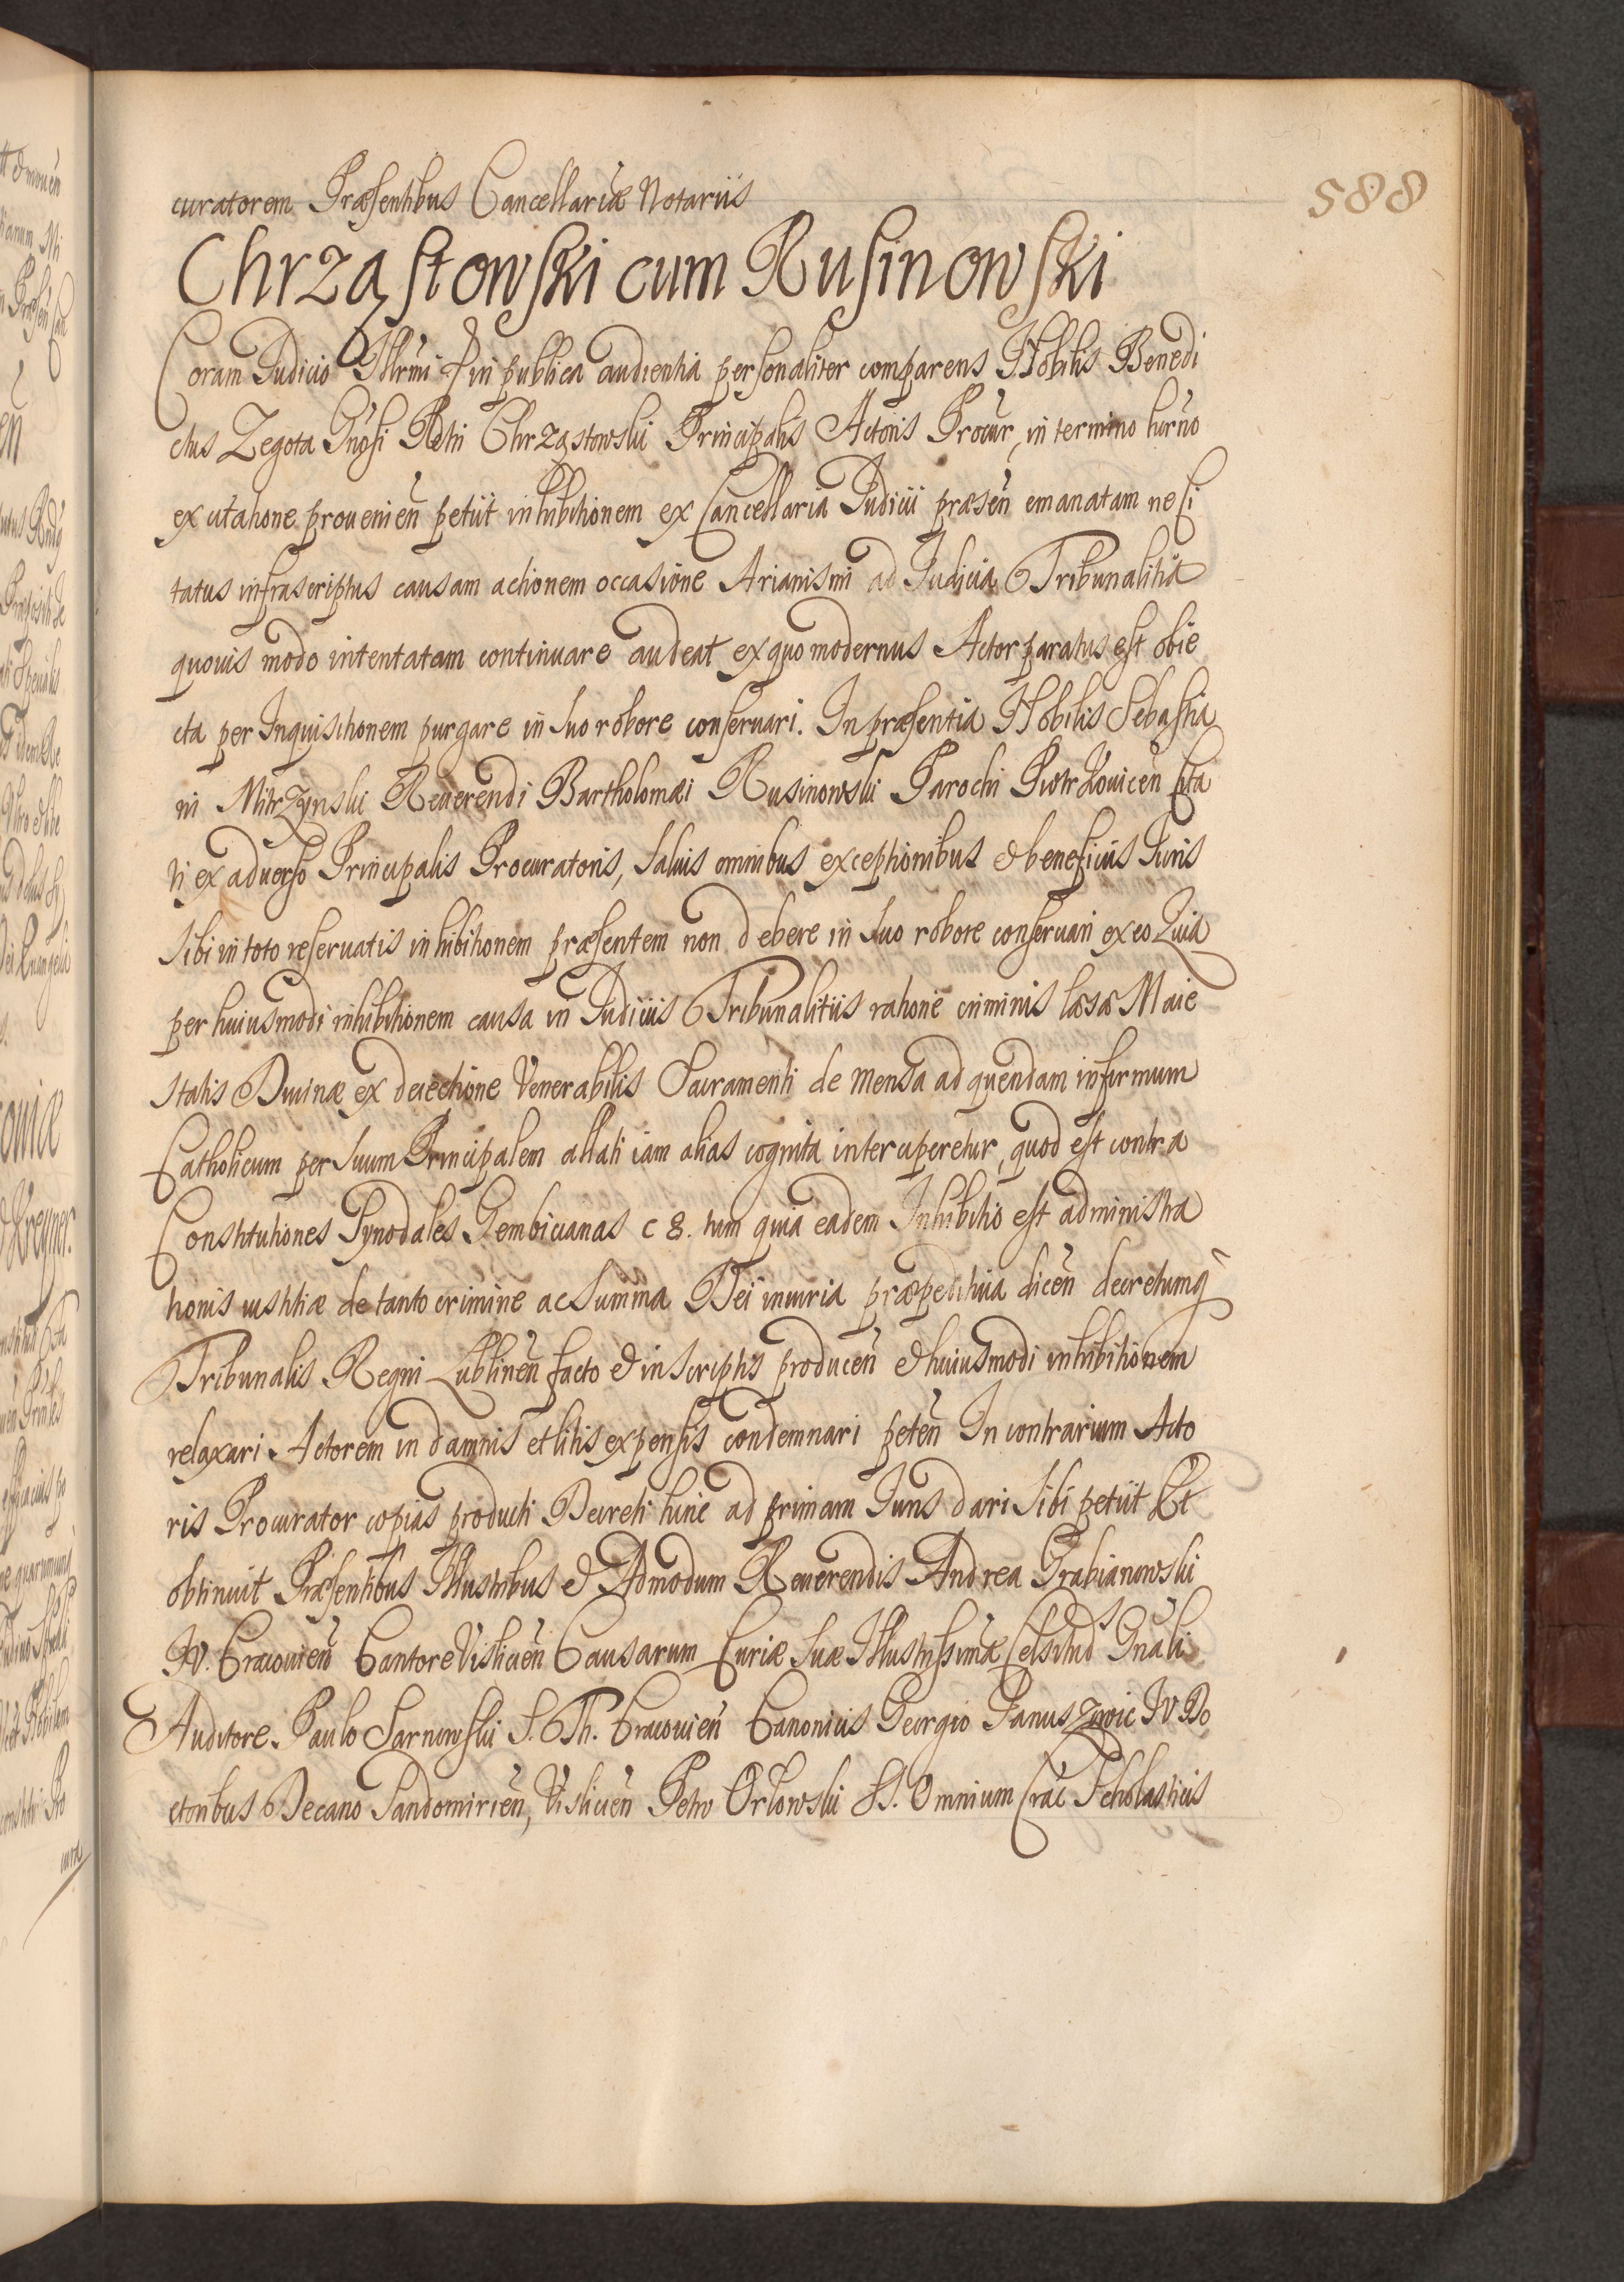 588
curatorem Præsentibus Cancellariæ Notariis
Chrząstowski cum Rusinowski
Coram Iudicio Illrmi & in publica audientia personaliter comparens Nobilis Benedi
ctus Zegota Gnosi Petri Chrząstowski Principalis Actoris Procur, in termino hurno
ex citatione prouenien petiit inhibitionem ex Cancellaria Iudicii præsen emanatam ne Ci
tatus infrascriptus causam actionem occasione Arianismi ad Iudicia Tribunalitia
quouis modo intentatam continuare audeat ex quo modernus Actor paratus est obie
cta per Inquisitionem purgare in suo robore conseruari. In præsentia Nobilis Sebastia
ni Mitrzynski Reuerendi Bartholomæi Rusinowski Parochi Piotrkouicen Cita
ti ex aduerso Principalis Procuratoris, saluis omnibus exceptionibus & beneficiis Iuris
sibi in toto reseruatis inhibitionem præsentem non debere in suo robore conseruari ex eo Quia
per huiusmodi inhibitionem causa in Iudiciis Tribunalitiis ratione criminis læsæ Maie
statis Diuinæ ex deiectione Venerabilis Sacramenti de mensa ad quendam infirmum
Catholicum per suum Principalem allati iam alias cognita interciperetur, quod est contra
Constitutiones Synodales Gembicianas c 8. tum quia eadem Inhibitio est administra
tionis iustitiæ de tanto crimine ac summa Dei iniuria præpeditiua dicen decretumq
Tribunalis Regni Lublinen facto & in scriptis producen & huiusmodi inhibitionem
relaxari Actorem in damnis et litis expensis condemnari peten In contrarium Acto
ris Procurator copias producti Decreti hinc ad primam Iuris dari sibi petiit Et
obtinuit Præsentibus Illustribus & Admodum Reuerendis Andrea Grabianowski
IV. Cracouien Cantore Visliccien Causarum Curiæ suæ Illustrissimæ Celsitud Gnali
Auditore. Paulo Sarnowski S. Th. Cracouien Canonicis Georgio Ianuszowic IV Do
ctoribus Decano Sandomirien, Vislicien Petro Orłowski SS. Omnium Crac Scholasticis